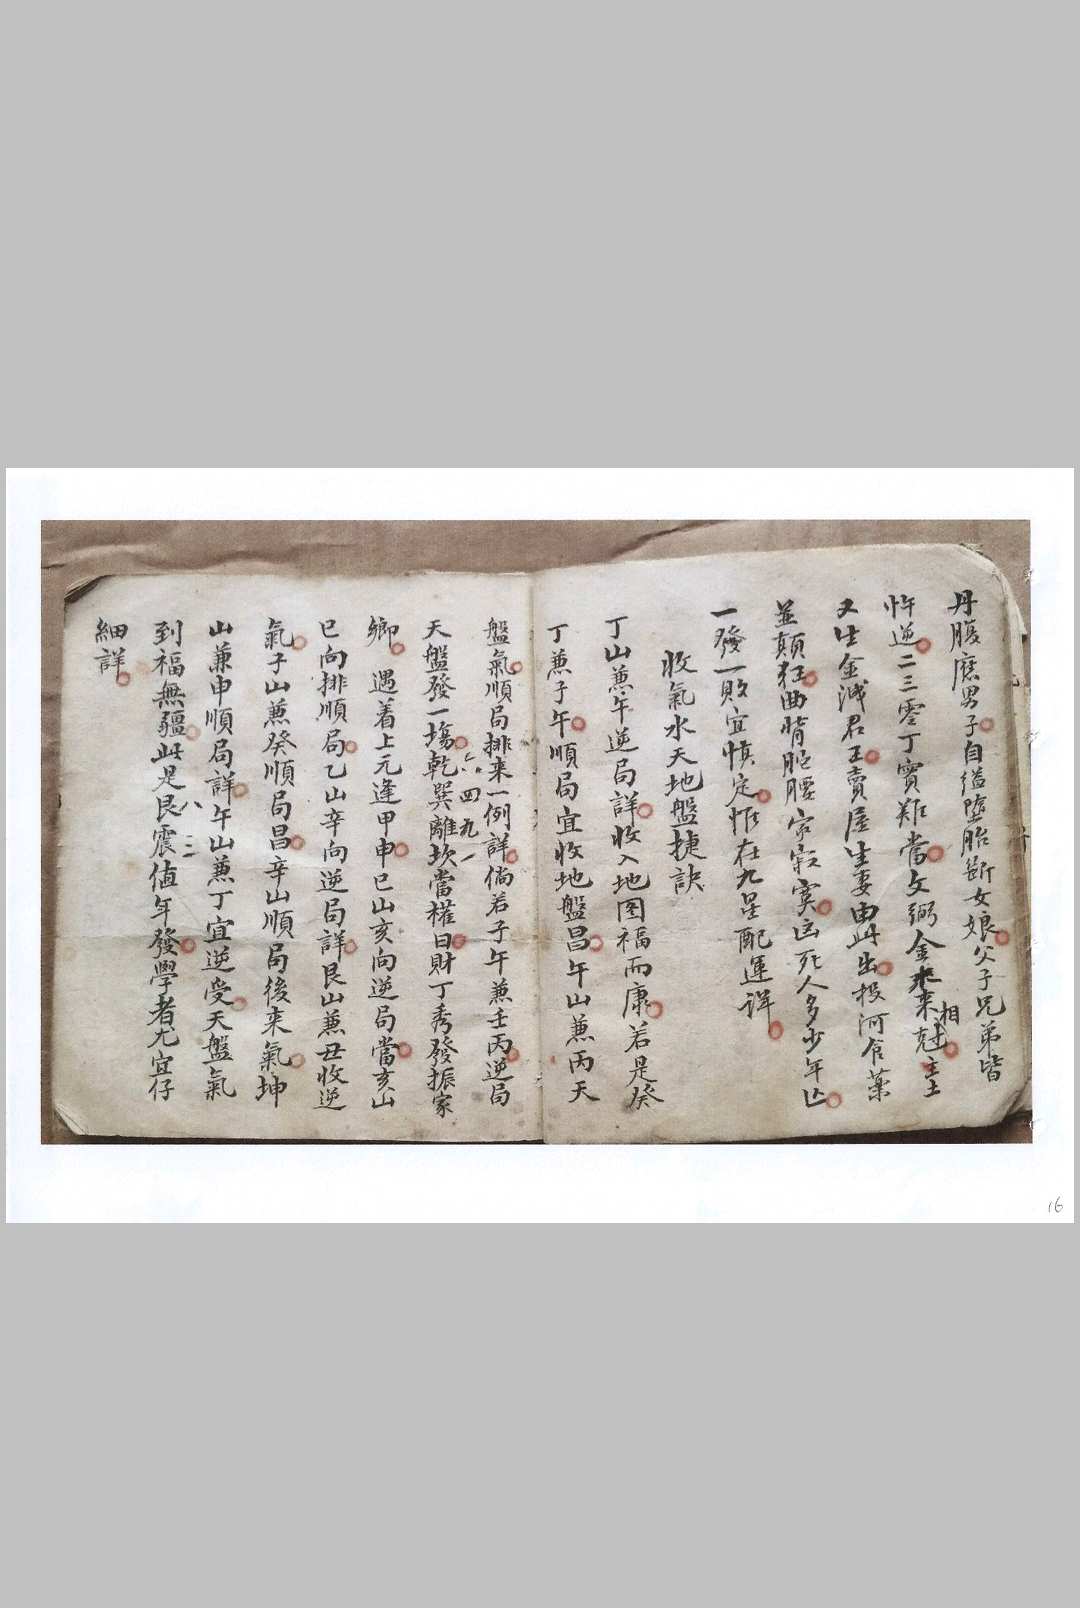 丹腹麽男子自缢墮胎斷女娘父子兄弟皆
忤逆二三零丁實难當文弼金来相尅主
又生金洩君王賣屋生妻由此出投河食藥
並顛狂曲背腰家寂寞凶死人多少年亡
一發一敗宜慎定惟在九星配運詳
收氣水天地盤捷訣
丁山兼午逆局詳收入地图福而康若是癸
丁兼子午順局宜收地盤昌午山兼丙天
盤氣順局排来一例詳倘若子午兼壬丙逆局
天盤發一塲乾巽離坎當權日財丁秀發振家
六四九一
鄉 遇着上元逢甲申巳山亥向逆局當亥山
巳向排順局乙山辛向逆局詳艮山兼丑收逆
氣子山兼癸順局昌辛山順局後来氣坤
山兼申順局詳午山兼丁宜逆受天盤氣
到福無疆此是艮震值年發學者尤宜仔
八三
細詳
16